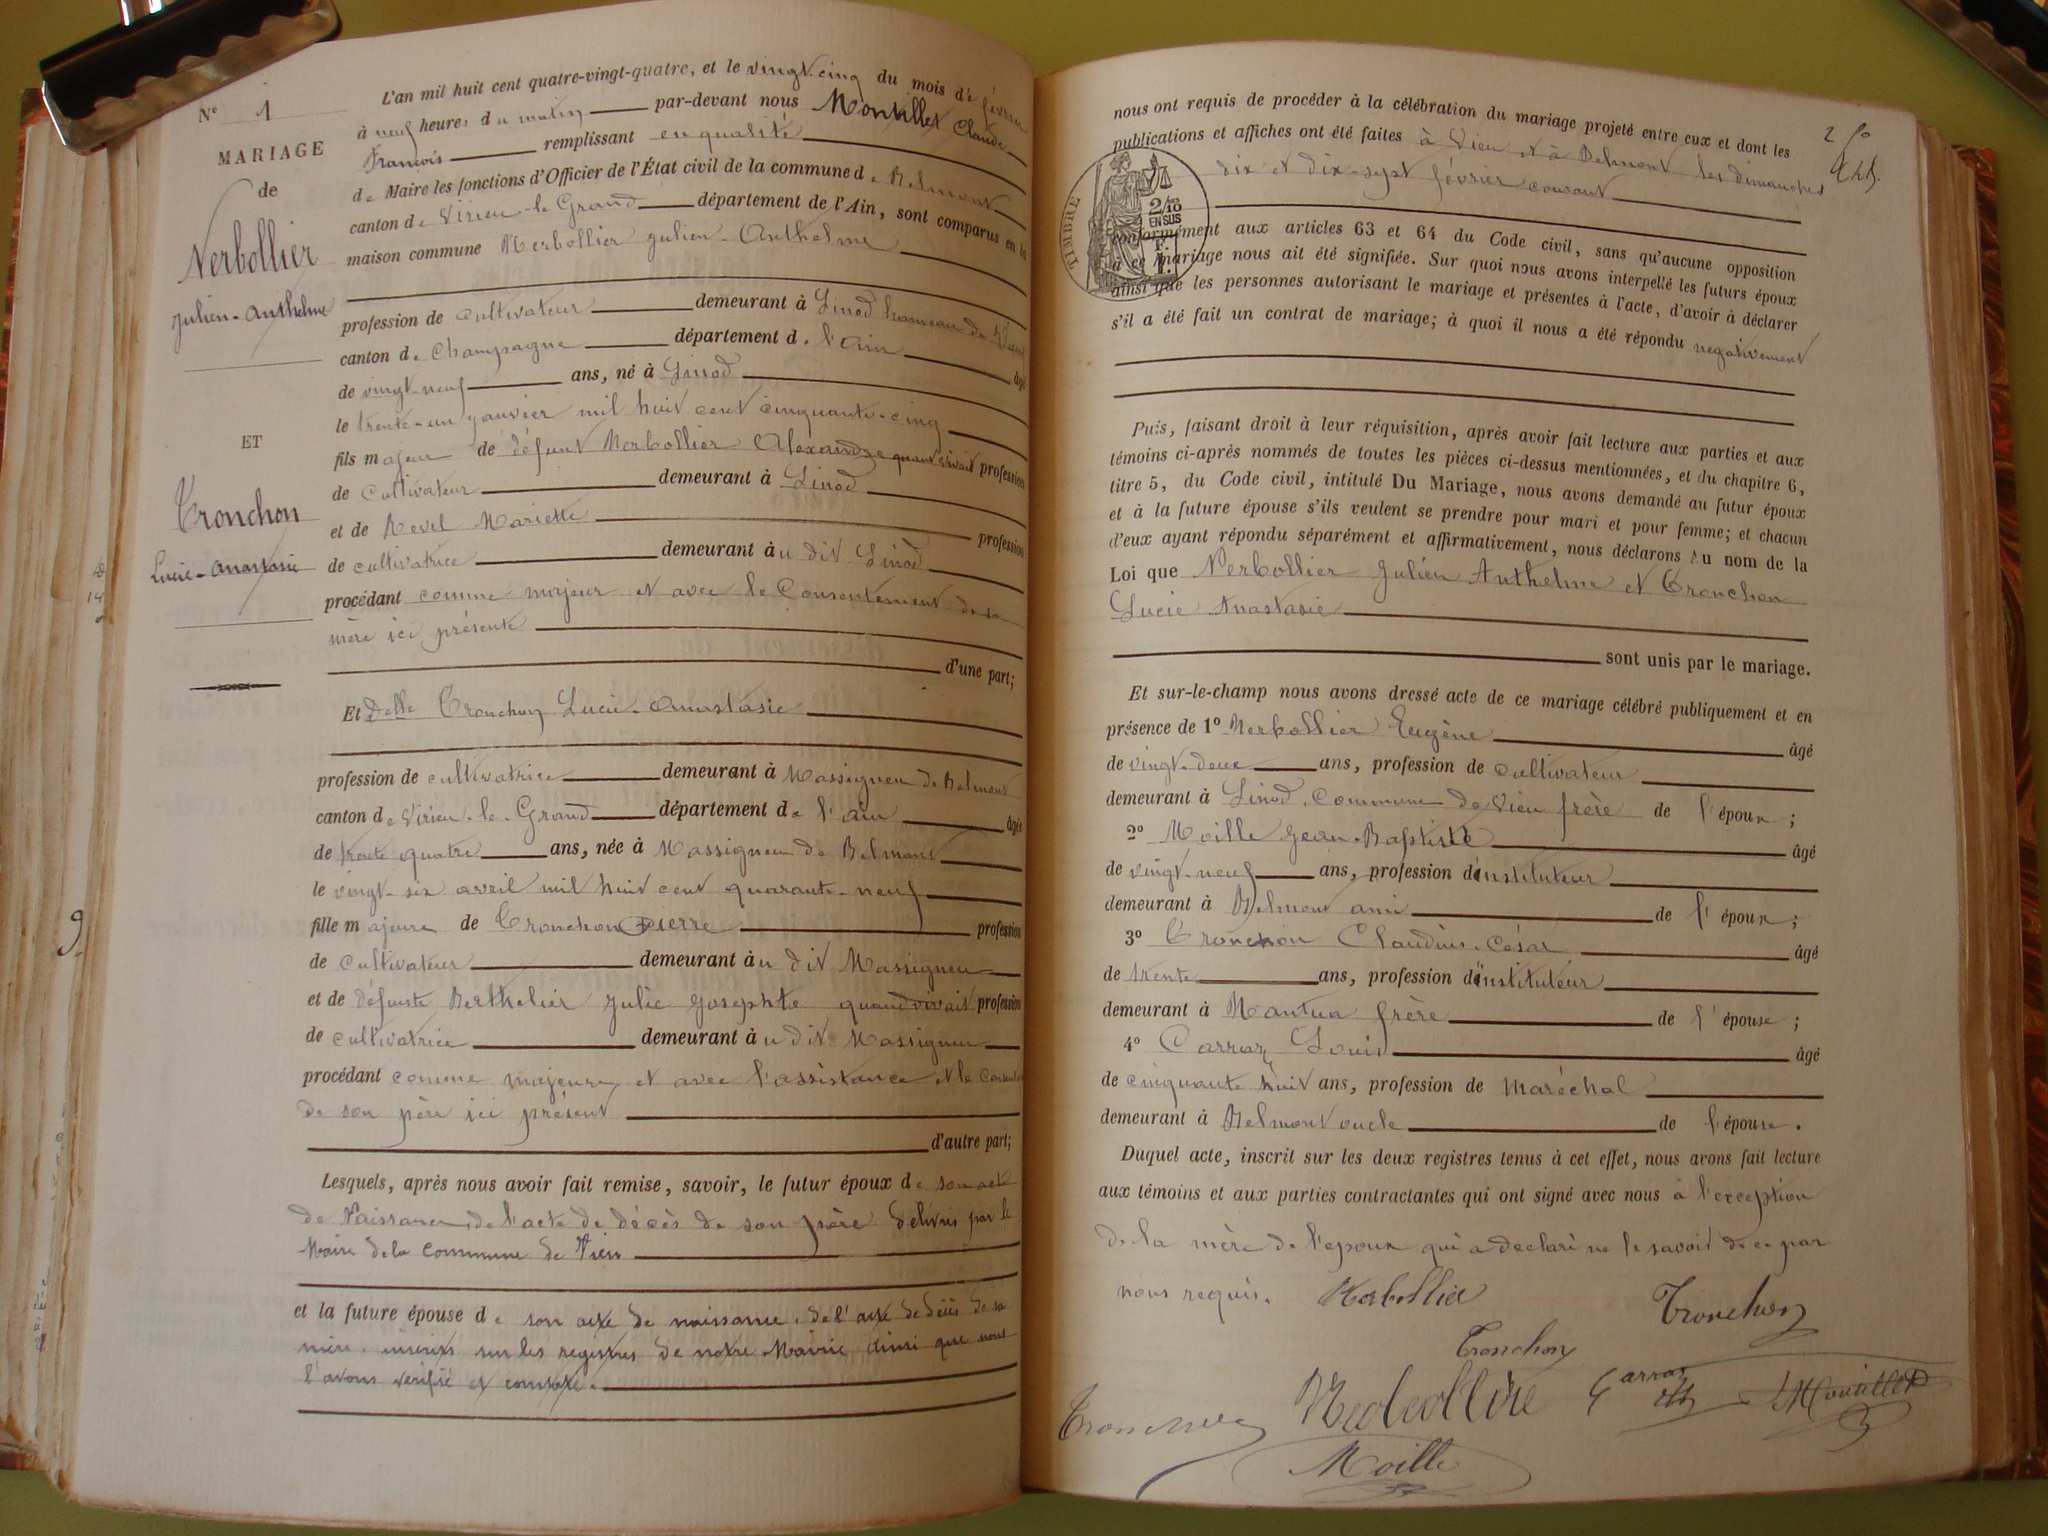 N° 1
MARIAGE
de
Nerbollier
Julien-Anthelme
ET
Tronchon
Lucie-Anastasie
L'an mil huit cent quatre-vingt-quatre, et le vingt-cinq du mois de février
à neuf heures du matin par-devant nous Montillet Claude
François remplissant en qualité
de Maire les fonctions d'Officier de l'État civil de la commune de Belmont
canton de Virieu-le-Grand département de l'Ain, sont comparus en la
maison commune Nerbollier Julien-Anthelme
profession de cultivateur demeurant à Linod hameau de Vieu
canton de Champagne département d. l'Ain âgé
de vingt-neuf ans, né à Linod
le trente-un janvier mil huit cent cinquante-cinq
fils majeur de défunt Nerbollier Alexandre quand vivait profession
de cultivateur demeurant à Linod
et de Revel Mariette profession
de cultivatrice demeurant au dit Linod
procédant comme majeur et avec le Consentement de sa
mère ici présente
d'une part;
Et Delle Tronchon Lucie-Anastasie
profession de cultivatrice demeurant à Massignieu de Belmont
canton de Virieu-le-Grand département de l'Ain âgée
de trente quatre ans, née à Massignieu de Belmont
le vingt-six avril mil huit cent quarante-neuf
fille majeure de Tronchon Pierre profession
de cultivateur demeurant au dit Massignieu
et de défunte Berthelier Julie Josephte quand vivait profession
de cultivatrice demeurant au dit Massignieu
procédant comme majeure et avec l'assistance et le
de son père ici présent
d'autre part;
Lesquels, après nous avoir fait remise, savoir, le futur époux de son acte
de Naissance, de l'acte de décès de son père délivrés par le
Maire de la commune de Vieu
et la future épouse de son acte de naissance, de l'acte de décès de sa
mère, inscrits sur les registres de notre Mairie ainsi que nous
l'avons vérifié et constaté.
9.
2
nous ont requis de procéder à la célébration du mariage projeté entre eux et dont les
publications et affiches ont été faites à Vieu et à Belmont les dimanches
dix et dix-sept février courant
TIMBRE
2/10
EN SUS
conformément aux articles 63 et 64 du Code civil, sans qu'aucune opposition
à ce mariage nous ait été signifiée. Sur quoi nous avons interpellé les futurs époux
ainsi que les personnes autorisant le mariage et présentes à l'acte, d'avoir à déclarer
s'il a été fait un contrat de mariage; à quoi il nous a été répondu négativement
Puis, faisant droit à leur réquisition, après avoir fait lecture aux parties et aux
témoins ci-après nommés de toutes les pièces ci-dessus mentionnées, et du chapitre 6,
titre 5, du Code civil, intitulé Du Mariage, nous avons demandé au futur époux
et à la future épouse s'ils veulent se prendre pour mari et pour femme; et chacun
d'eux ayant répondu séparément et affirmativement, nous déclarons au nom de la
Loi que Nerbollier Julien Anthelme et Tronchon
Lucie Anastasie
sont unis par le mariage.
Et sur-le-champ nous avons dressé acte de ce mariage célébré publiquement et en
présence de 1° Nerbollier Eugène âgé
de vingt-deux ans, profession de cultivateur
demeurant à Linod, Commune de Vieu frère de l'époux;
2° Moille Jean-Baptiste âgé
de vingt-neuf ans, profession d'instituteur
demeurant à Belmont ami de l'époux;
3° Tronchon Claudius-César âgé
de trente ans, profession d'instituteur
demeurant à Nantua frère de l'épouse;
4° Carraz Louis âgé
de cinquante huit ans, profession de maréchal
demeurant à Belmont oncle de l'épouse.
Duquel acte, inscrit sur les deux registres tenus à cet effet, nous avons fait lecture
aux témoins et aux parties contractantes qui ont signé avec nous à l'exception
de la mère de l'époux qui a déclaré ne le savoir de ce par
nous requis. Nerbollier Tronchon
Tronchon
Tronchon Nerbollier Carraz Montillet
Moille